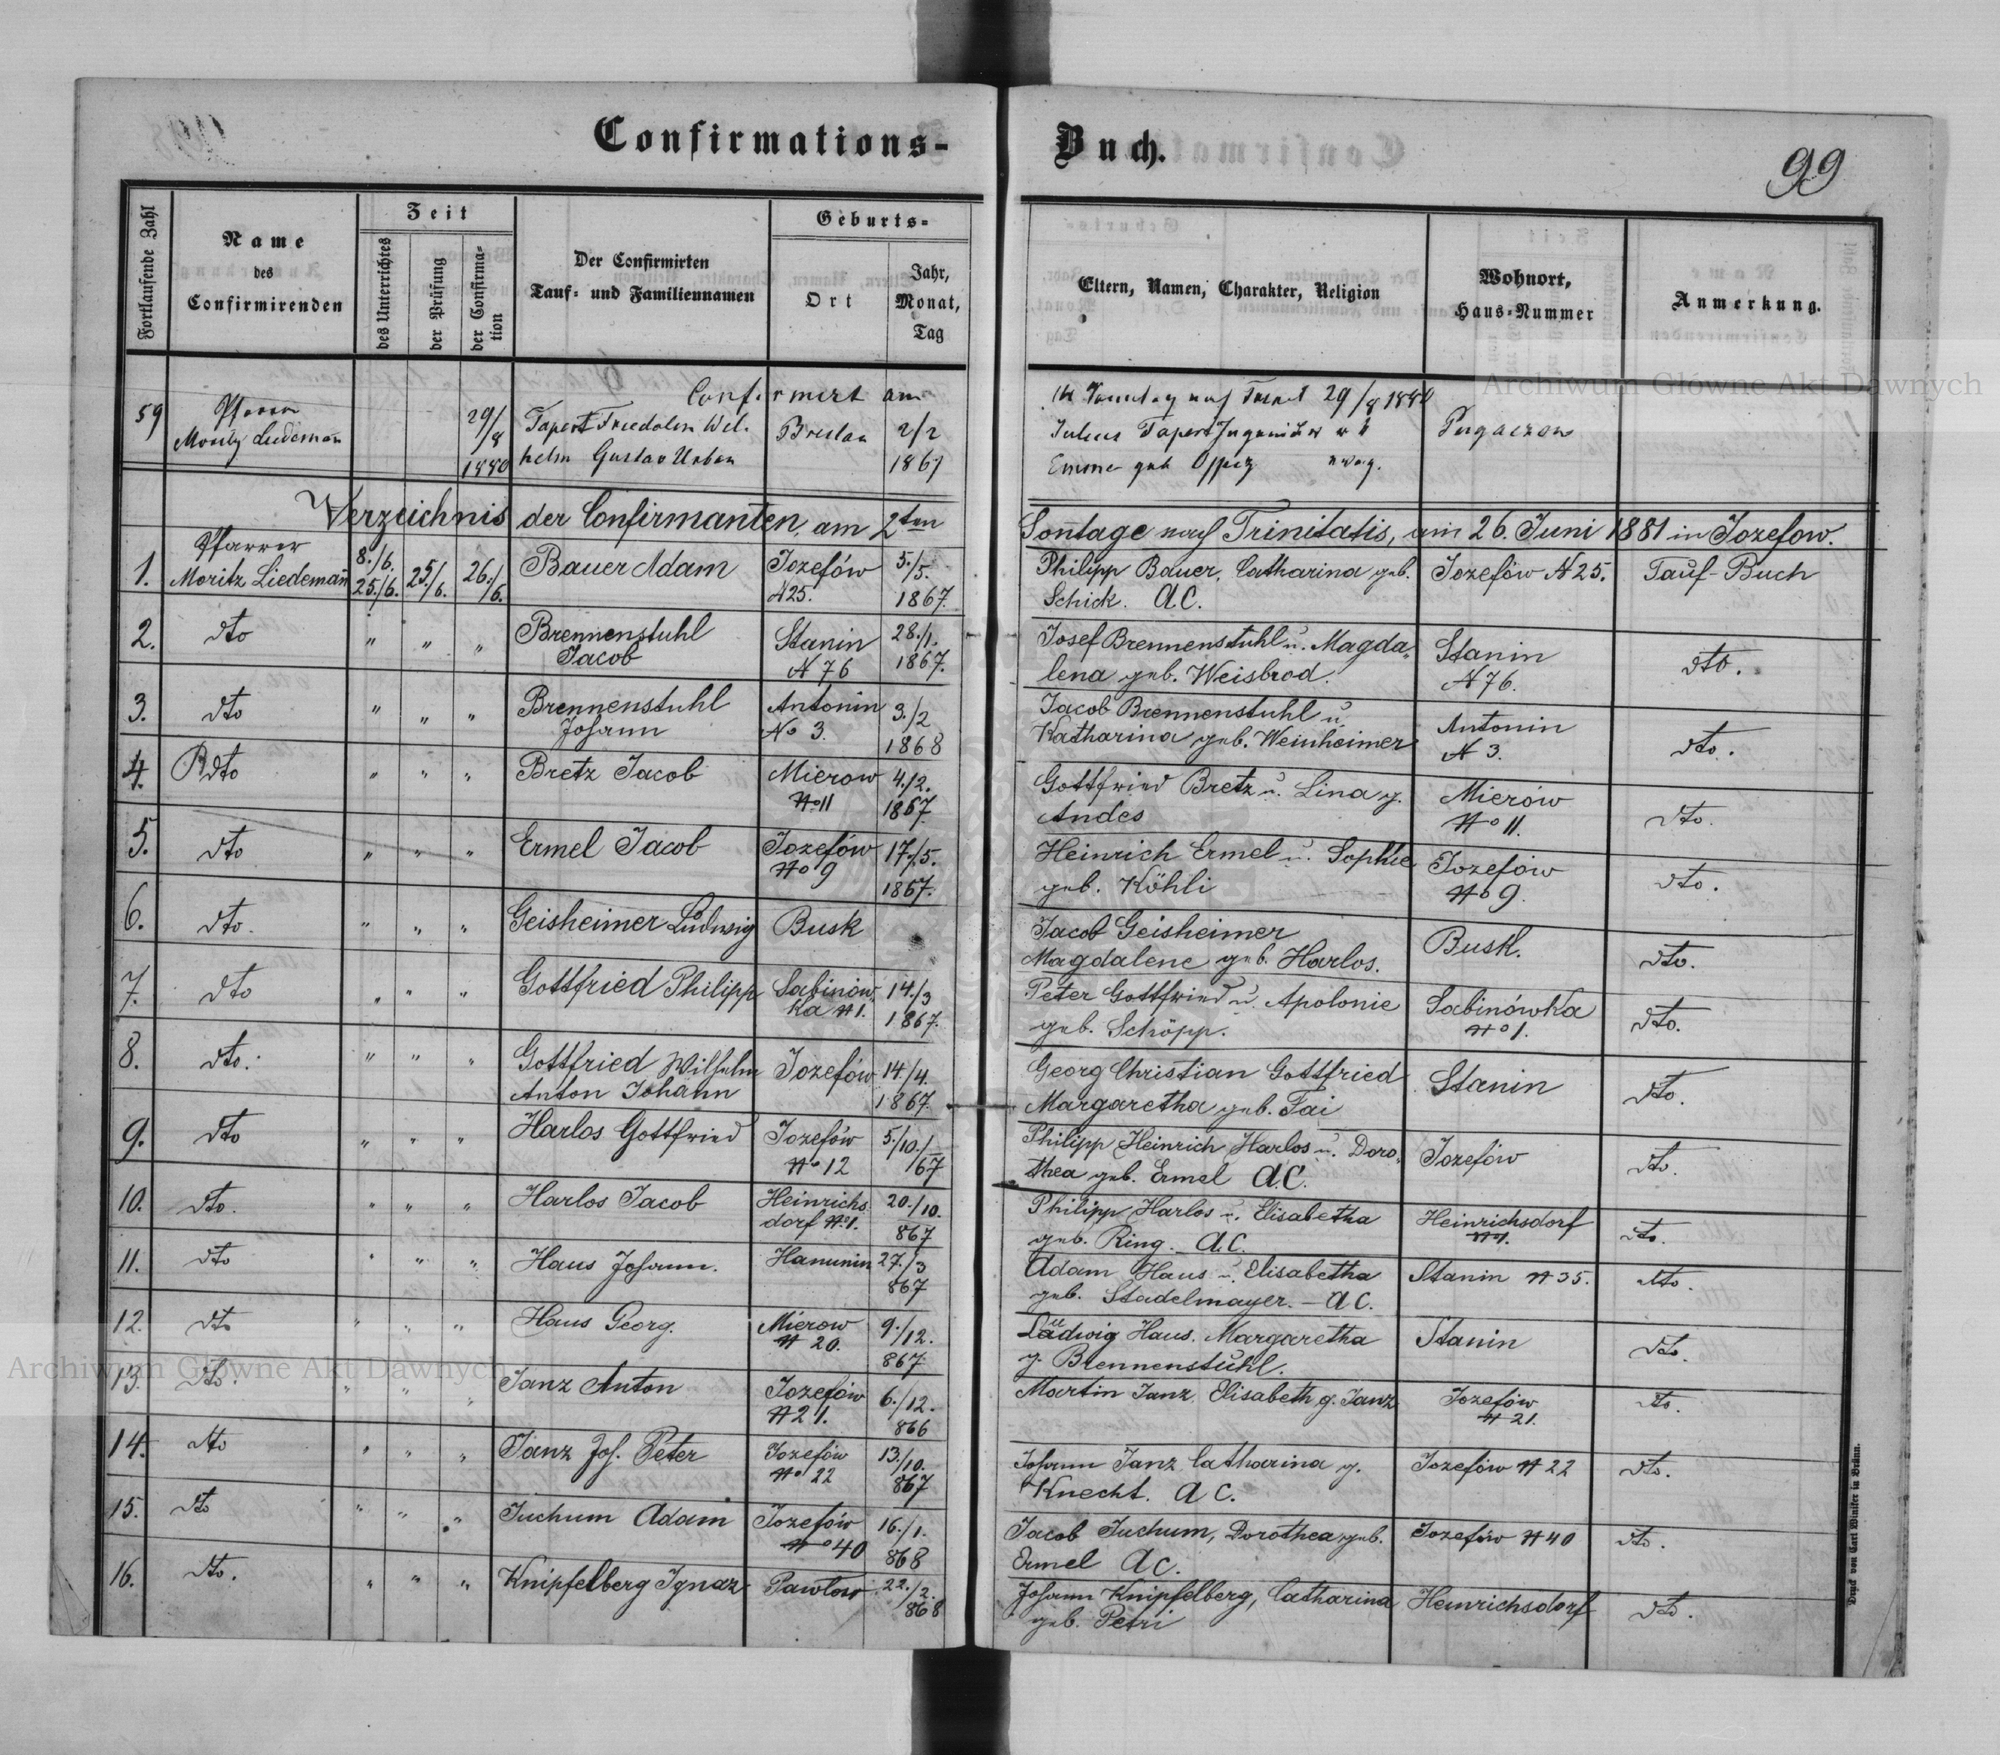 Confirmations-Buch.
99
Fortlaufende Zahl
Name des Confirmirenden
Zeit
des Unterrichtes
der Prüfung
der Confirmation
Der Confirmirten Tauf- und Familiennamen
Geburts-
Ort
Jahr, Monat, Tag
Eltern, Namen, Charakter, Religion
Wohnort, Haus-Nummer
Anmerkung.
Confirmirt am 29/8 1880
59 Pfarrer 29/8 1880 Tapert Friedolin Wilhelm Gustav Urban Breslau 2/2 1867 Julius Tapert Emma geb.
Verzeichnis der Confirmanten, am 2ten Sontage nach Trinitatis, am 26. Juni 1881 in Jozefow.
1. Pfarrer Moritz Liedemañ 8./6. 25./6. 25./6. 26./6. Bauer Adam Jozefów N 25. 5./5. 1867. Philipp Bauer, Catharina geb. Schick. A.C. Jozefów N 25. Tauf-Buch
2. dto " " " Brennenstuhl Jacob Stanin N 76 28./1. 1867. Josef Brennenstuhl u. Magdalena geb. Weisbrod. Stanin N 76. dto.
3. dto " " " Brennenstuhl Johann Antonin No 3. 3./2 1868 Jacob Brennenstuhl u. Katharina geb. Weinheimer Antonin N 3. dto.
4. dto " " " Bretz Jacob Mierow No 11 4./2. 1867. Gottfried Bretz u. Lina g. Andes Mierów No 11. dto.
5. dto " " " Ermel Jacob Jozefów No 9 17./5. 1867. Heinrich Ermel u. Sophie geb. Köhli Jozefów No 9. dto.
6. dto. " " " Geisheimer Ludwig Busk Jacob Geisheimer Magdalene geb. Harlos. Busk. dto.
7. dto " " " Gottfried Philipp Sabinowka N 1. 14./3 1867. Peter Gottfried u. Apolonie geb. Schöpp. Sabinówka No 1. dto.
8. dto. " " " Gottfried Wilhelm Anton Johann Jozefów 14./4. 1867. Georg Christian Gottfried Margaretha geb. Fai Stanin dto.
9. dto " " " Harlos Gottfried Jozefów No 12 5./10./67 Philipp Heinrich Harlos u. Dorothea geb. Ermel A.C. Jozefów dto.
10. dto. " " " Harlos Jacob Heinrichsdorf No 1. 20./10. 867 Philipp Harlos u. Elisabetha geb. Ring. A.C. Heinrichsdorf No 1. dto.
11. dto " " " Haus Johann. Hanunin 27./3 867 Adam Haus u. Elisabetha geb. Stadelmayer. - A C. Stanin N 35. dto.
12. dto " " " Haus Georg. Mierow N 20. 9./12. 867 Ludwig Haus. Margaretha g. Brennenstuhl. Stanin dto.
13. dto. " " " Janz Anton Jozefów N 21. 6./12. 866 Martin Janz, Elisabeth g. Janz Jozefów N 21. dto.
14. dto " " " Janz Joh. Peter Jozefów No 22 13./10. 867 Johann Janz Catharina g. Knecht. A C. Jozefów N 22 dto.
15. dto " " " Juchum Adam Jozefów No 40 16./1. 868 Jacob Juchum, Dorothea geb. Ermel A C. Jozefów N 40 dto.
16. dto. " " " Knipfelberg Ignaz Pawlow 22./2. 868 Johann Knipfelberg, Catharina geb. Petri Heinrichsdorf dto.
Druck von Carl Winiker in Brünn.
Archiwum Główne Akt Dawnych
Archiwum Główne Akt Dawnych